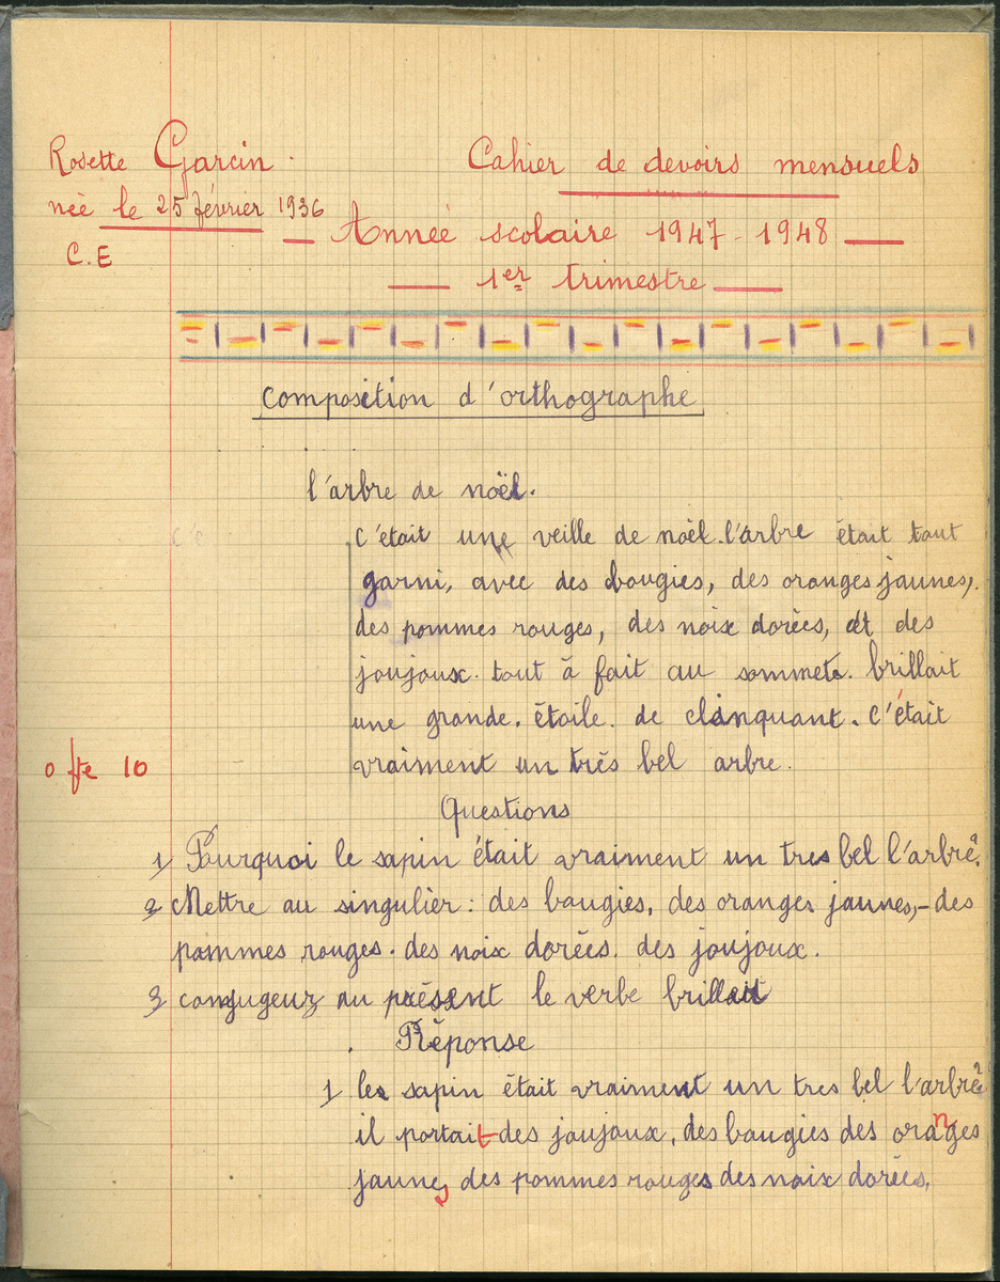 Rosette Garcin.
née le 25 février 1936
C.E
Cahier de devoirs mensuels
Année scolaire 1947-1948
1er trimestre
composition d'orthographe
l'arbre de noël.
c'était une veille de noël. l'arbre était tout
garni, avec des bougies, des oranges jaunes,
des pommes rouges, des noix dorées, et des
joujoux. tout à fait au sommet. brillait
une grande. étoile. de clinquant. c'était
vraiment un très bel arbre.
0 fte 10
Questions
1 Pourquoi le sapin était vraiment un tres bel l'arbre?
2 Mettre au singulier: des bougies, des oranges jaunes,-des
pommes rouges. des noix dorées. des joujoux.
3 conjugeuz au présent le verbe brillait
Réponse
1 le sapin était vraiment un tres bel l'arbre?
il portait des joujoux, des bougies des oranges
jaunes des pommes rouges des noix dorées,